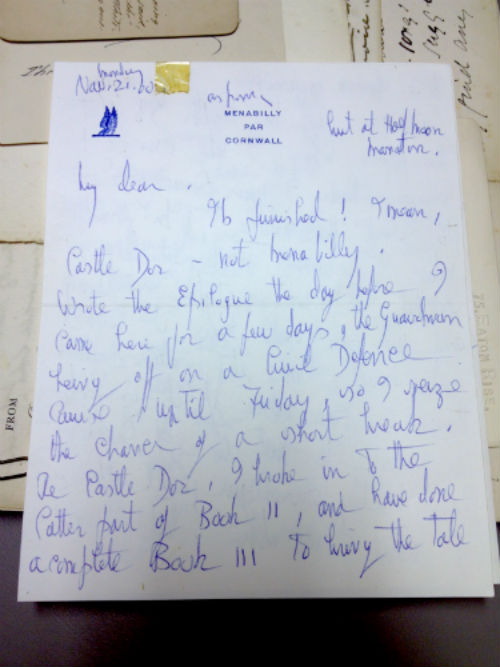 Monday
Nov. 21. 60
as from
MENABILLY
PAR
CORNWALL
but at Half moon
manaton.
My dear.
It's finished! I mean,
Castle Dor – not Menabilly.
Wrote the Epilogue the day before I
came here for a few days, the Guardsman
being off on a Civil Defence
course until Friday, so I seize
the chance of a short break.
Re Castle Dor, I broke in to the
latter part of Book II, and have done
a complete Book III to bring the Tale
FROM